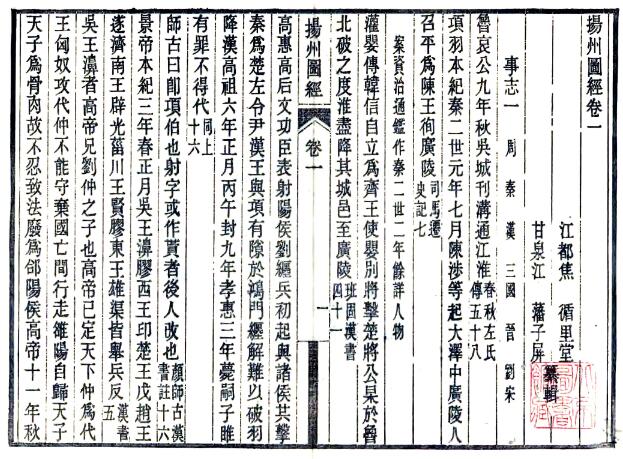 揚州圖經卷一
江都焦　循里堂
甘泉江　藩子屏
纂輯
事志一　周　秦　漢　三國　晉　劉宋
魯哀公九年秋吳城刋溝通江淮春秋左氏傳五十八
項羽本紀秦二世元年七月陳涉等起大澤中廣陵人
召平爲陳王徇廣陵司馬遷史記七
案資治通鑑作秦二世二年餘詳人物
灌嬰傳韓信自立爲齊王使嬰別將擊楚將公杲於魯
北破之度淮盡降其城邑至廣陵班固漢書四十一
揚州圖經
卷一
一
高惠高后文功臣表射陽侯劉纒兵初起與諸侯共擊
秦爲楚左令尹漢王與項有隙於鴻門纒解難以破羽
降漢高祖六年正月丙午封九年孝惠三年薨嗣子睢
有罪不得代同上十六
師古曰卽項伯也射字或作貰者後人改也顏師古漢書註十六
景帝本紀三年春正月吳王濞膠西王卬楚王戊趙王
遂濟南王辟光菑川王賢膠東王雄渠皆舉兵反漢書五
吳王濞者高帝兄劉仲之子也高帝已定天下仲爲代
王匈奴攻代仲不能守棄國亡間行走雒陽自歸天子
天子爲骨肉故不忍致法廢爲郃陽侯高帝十一年秋